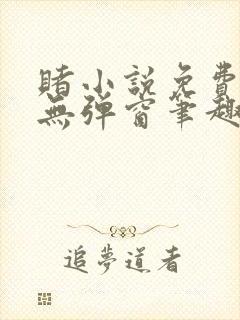 賭小説免費
無弹窗筆趣
追夢道者